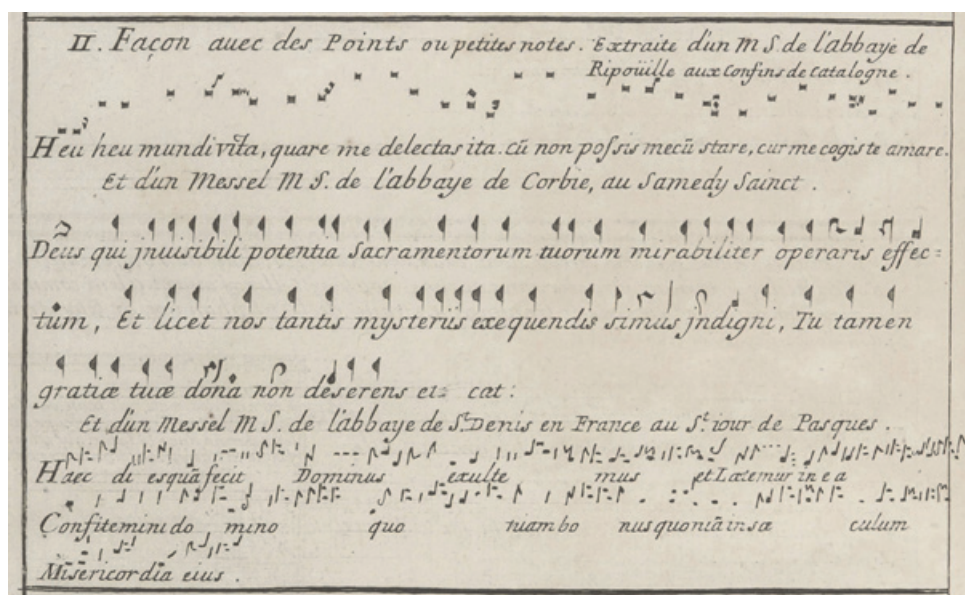 II. Façon auec des Points ou petites notes. Extraite d'un M S. de l'abbaye de
Ripoüille aux Confins de Catalogne.
Heu heu mundi vita, quare me delectas ita. cū non possis mecū stare, cur me cogis te amare.
Et d'un Messel M S. de l'abbaye de Corbie, au Samedy Sainct.
Deus qui jnuisibili potentia Sacramentorum tuorum mirabiliter operaris effec=
tum, Et licet nos tantis mysterijs exequendis simus jndigni, Tu tamen
gratiæ tuæ dona non deserens et= cat:
Et d'un Messel M S. de l'abbaye de St. Denis en France au St. iour de Pasques.
Haec di esquā fecit Dominus exulte mus et Laetemur in e a
Confitemini do mino quo niam bo nus quoniā in sæ culum
Misericordia eius.